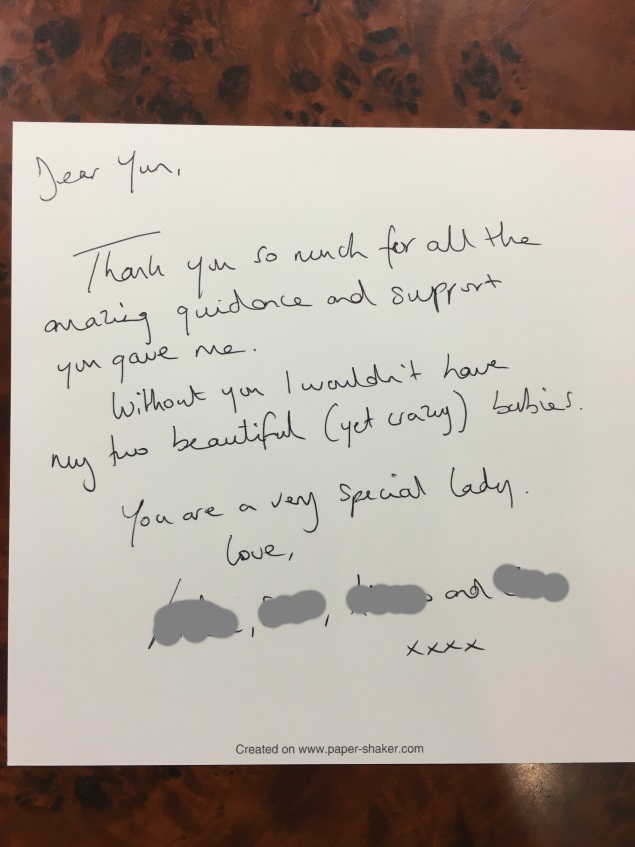 Dear Yun,
Thank you so much for all the
amazing guidance and support
you gave me.
Without you I wouldn't have
my two beautiful (yet crazy) babies.
You are a very special lady.
Love,
, , and
xxxx
Created on www.paper-shaker.com